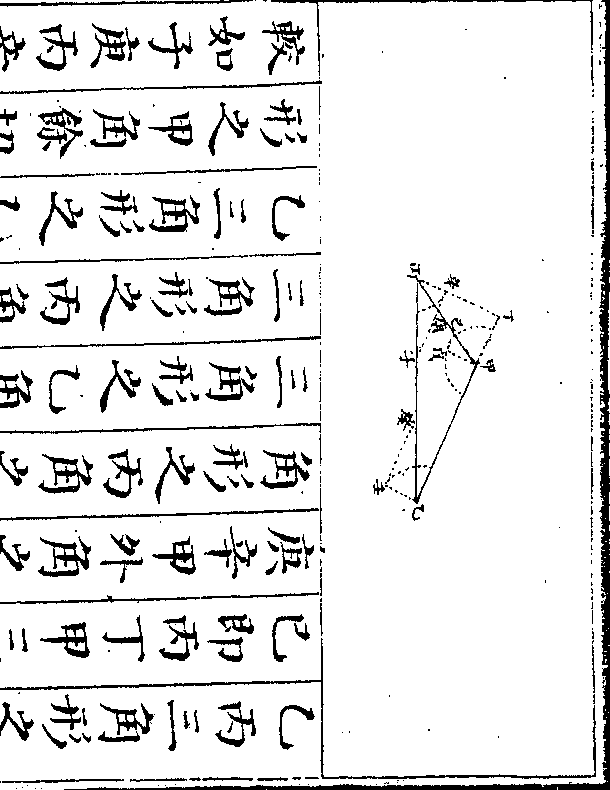 乙丙三角形之
己即丙丁甲三
庚辛甲外角之
角形之丙角之
三角形之乙角
三角形之丙角
乙三角形之
形之甲角餘切
較如子庚丙辛
丁
甲
辛
己
戊
庚
丙
子
癸
乙
壬